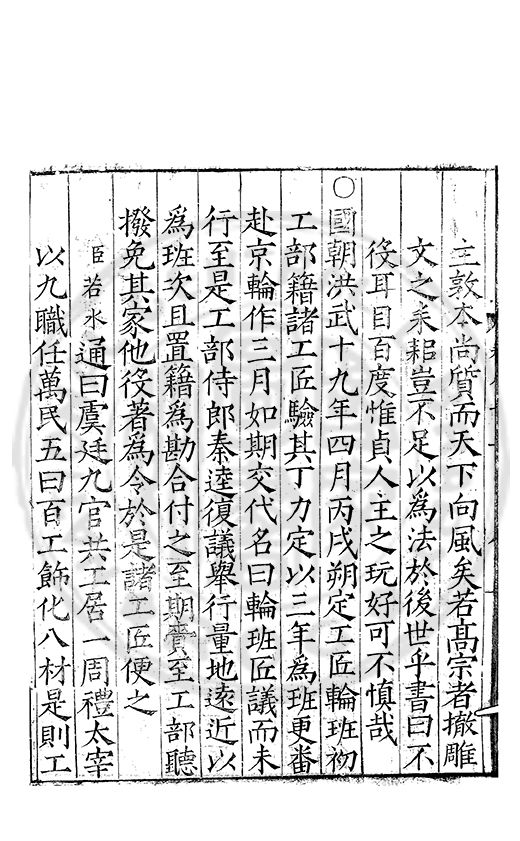 主敦本尚質而天下向風矣若髙宗者撤雕
文之耒耜豈不足以爲法於後世乎書曰不
役耳目百度惟貞人主之玩好可不慎哉
○國朝洪武十九年四月丙戌朔定工匠輪班初
工部籍諸工匠驗其丁力定以三年爲班更番
赴京輪作三月如期交代名曰輪班匠議而未
行至是工部侍郎秦逵復議舉行量地遠近以
爲班次且置籍爲勘合付之至期賫至工部聽
撥免其家他役著爲令於是諸工匠便之
臣若水通曰虞廷九官共工居一周禮太宰
以九職任萬民五曰百工飾化八材是則工